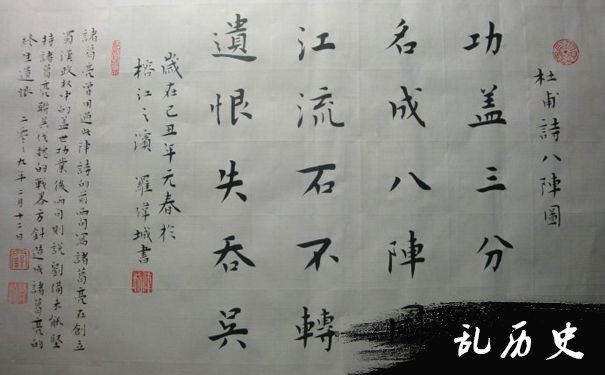 杜甫詩八陣圖
功盖三分
名成八陣
江流石不轉
遺恨失吞吳
歲在己丑年元春於
榕江之濱 羅偉城書
諸葛亮曾用過此陣詩的前兩句寫諸葛亮在創立
蜀漢政权中的盖世功業後兩句則説劉備未能堅
持諸葛亮聯吳伐魏的戰略方針造成諸葛亮的
終生遺恨 二零零九年二月十二日
乱历史